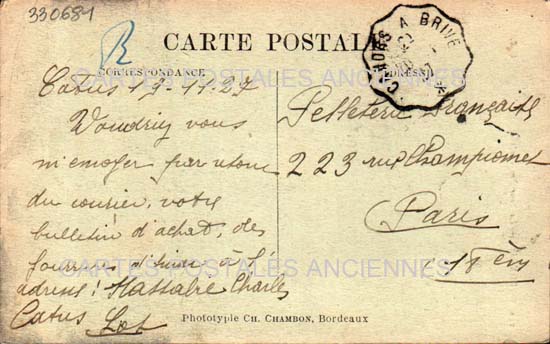 330681
R
CARTE POSTALE
CORRESPONDANCE
ADRESSE
CAHORS A BRIVE
Catus 19-11-27
Voudriez vous
m'envoyer par retour
du courier, votre
bulletin d'achat, des
fourrures d'hiver à l'
adress! Massabre Charles
Catus Lot
Pelleterie Française
223 rue Championnet
Paris
18 èm
CARTES POSTALES ANCIENNES
CARTES POSTALES ANCIENNES
Phototypie CH. CHAMBON, Bordeaux